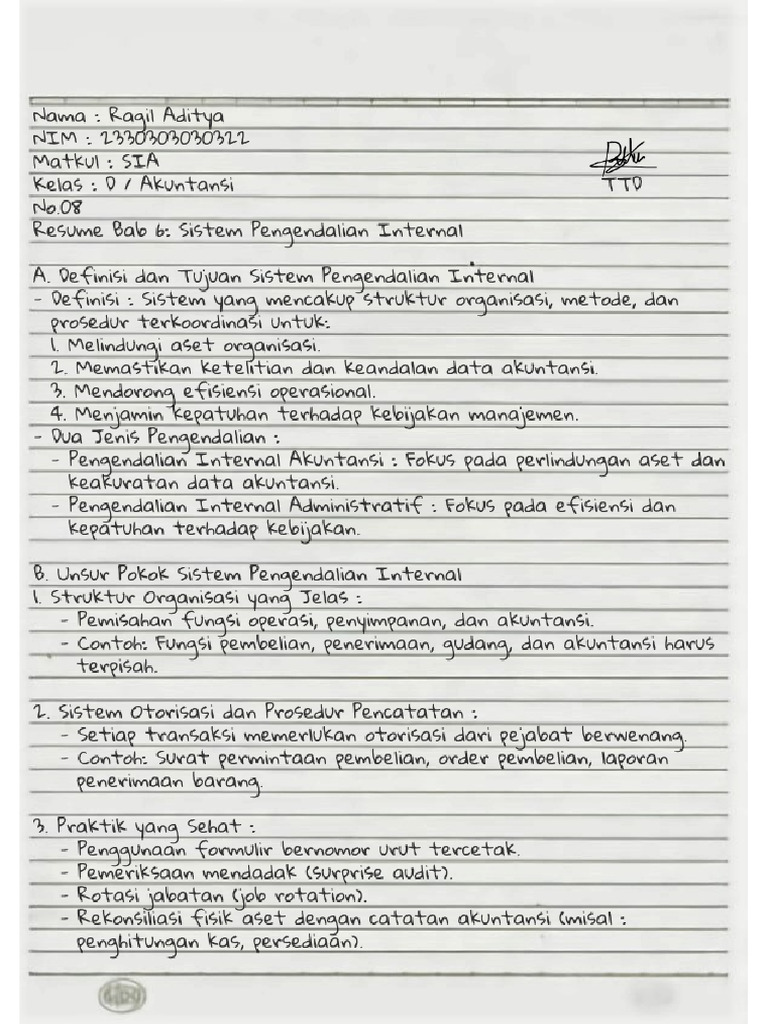 Nama : Ragil Aditya
NIM : 2330303030322
Matkul : SIA
Kelas : D / Akuntansi
TTD
No.08
Resume Bab 6: Sistem Pengendalian Internal
A. Definisi dan Tujuan Sistem Pengendalian Internal
- Definisi : Sistem yang mencakup struktur organisasi, metode, dan
prosedur terkoordinasi untuk:
1. Melindungi aset organisasi.
2. Memastikan ketelitian dan keandalan data akuntansi.
3. Mendorong efisiensi operasional.
4. Menjamin kepatuhan terhadap kebijakan manajemen.
- Dua Jenis Pengendalian :
- Pengendalian Internal Akuntansi : Fokus pada perlindungan aset dan
keakuratan data akuntansi.
- Pengendalian Internal Administratif : Fokus pada efisiensi dan
kepatuhan terhadap kebijakan.
B. Unsur Pokok Sistem Pengendalian Internal
1. Struktur Organisasi yang Jelas :
- Pemisahan fungsi operasi, penyimpanan, dan akuntansi.
- Contoh: Fungsi pembelian, penerimaan, gudang, dan akuntansi harus
terpisah.
2. Sistem Otorisasi dan Prosedur Pencatatan :
- Setiap transaksi memerlukan otorisasi dari pejabat berwenang.
- Contoh: Surat permintaan pembelian, order pembelian, laporan
penerimaan barang.
3. Praktik yang Sehat :
- Penggunaan formulir bernomor urut tercetak.
- Pemeriksaan mendadak (surprise audit).
- Rotasi jabatan (job rotation).
- Rekonsiliasi fisik aset dengan catatan akuntansi (misal :
penghitungan kas, persediaan).